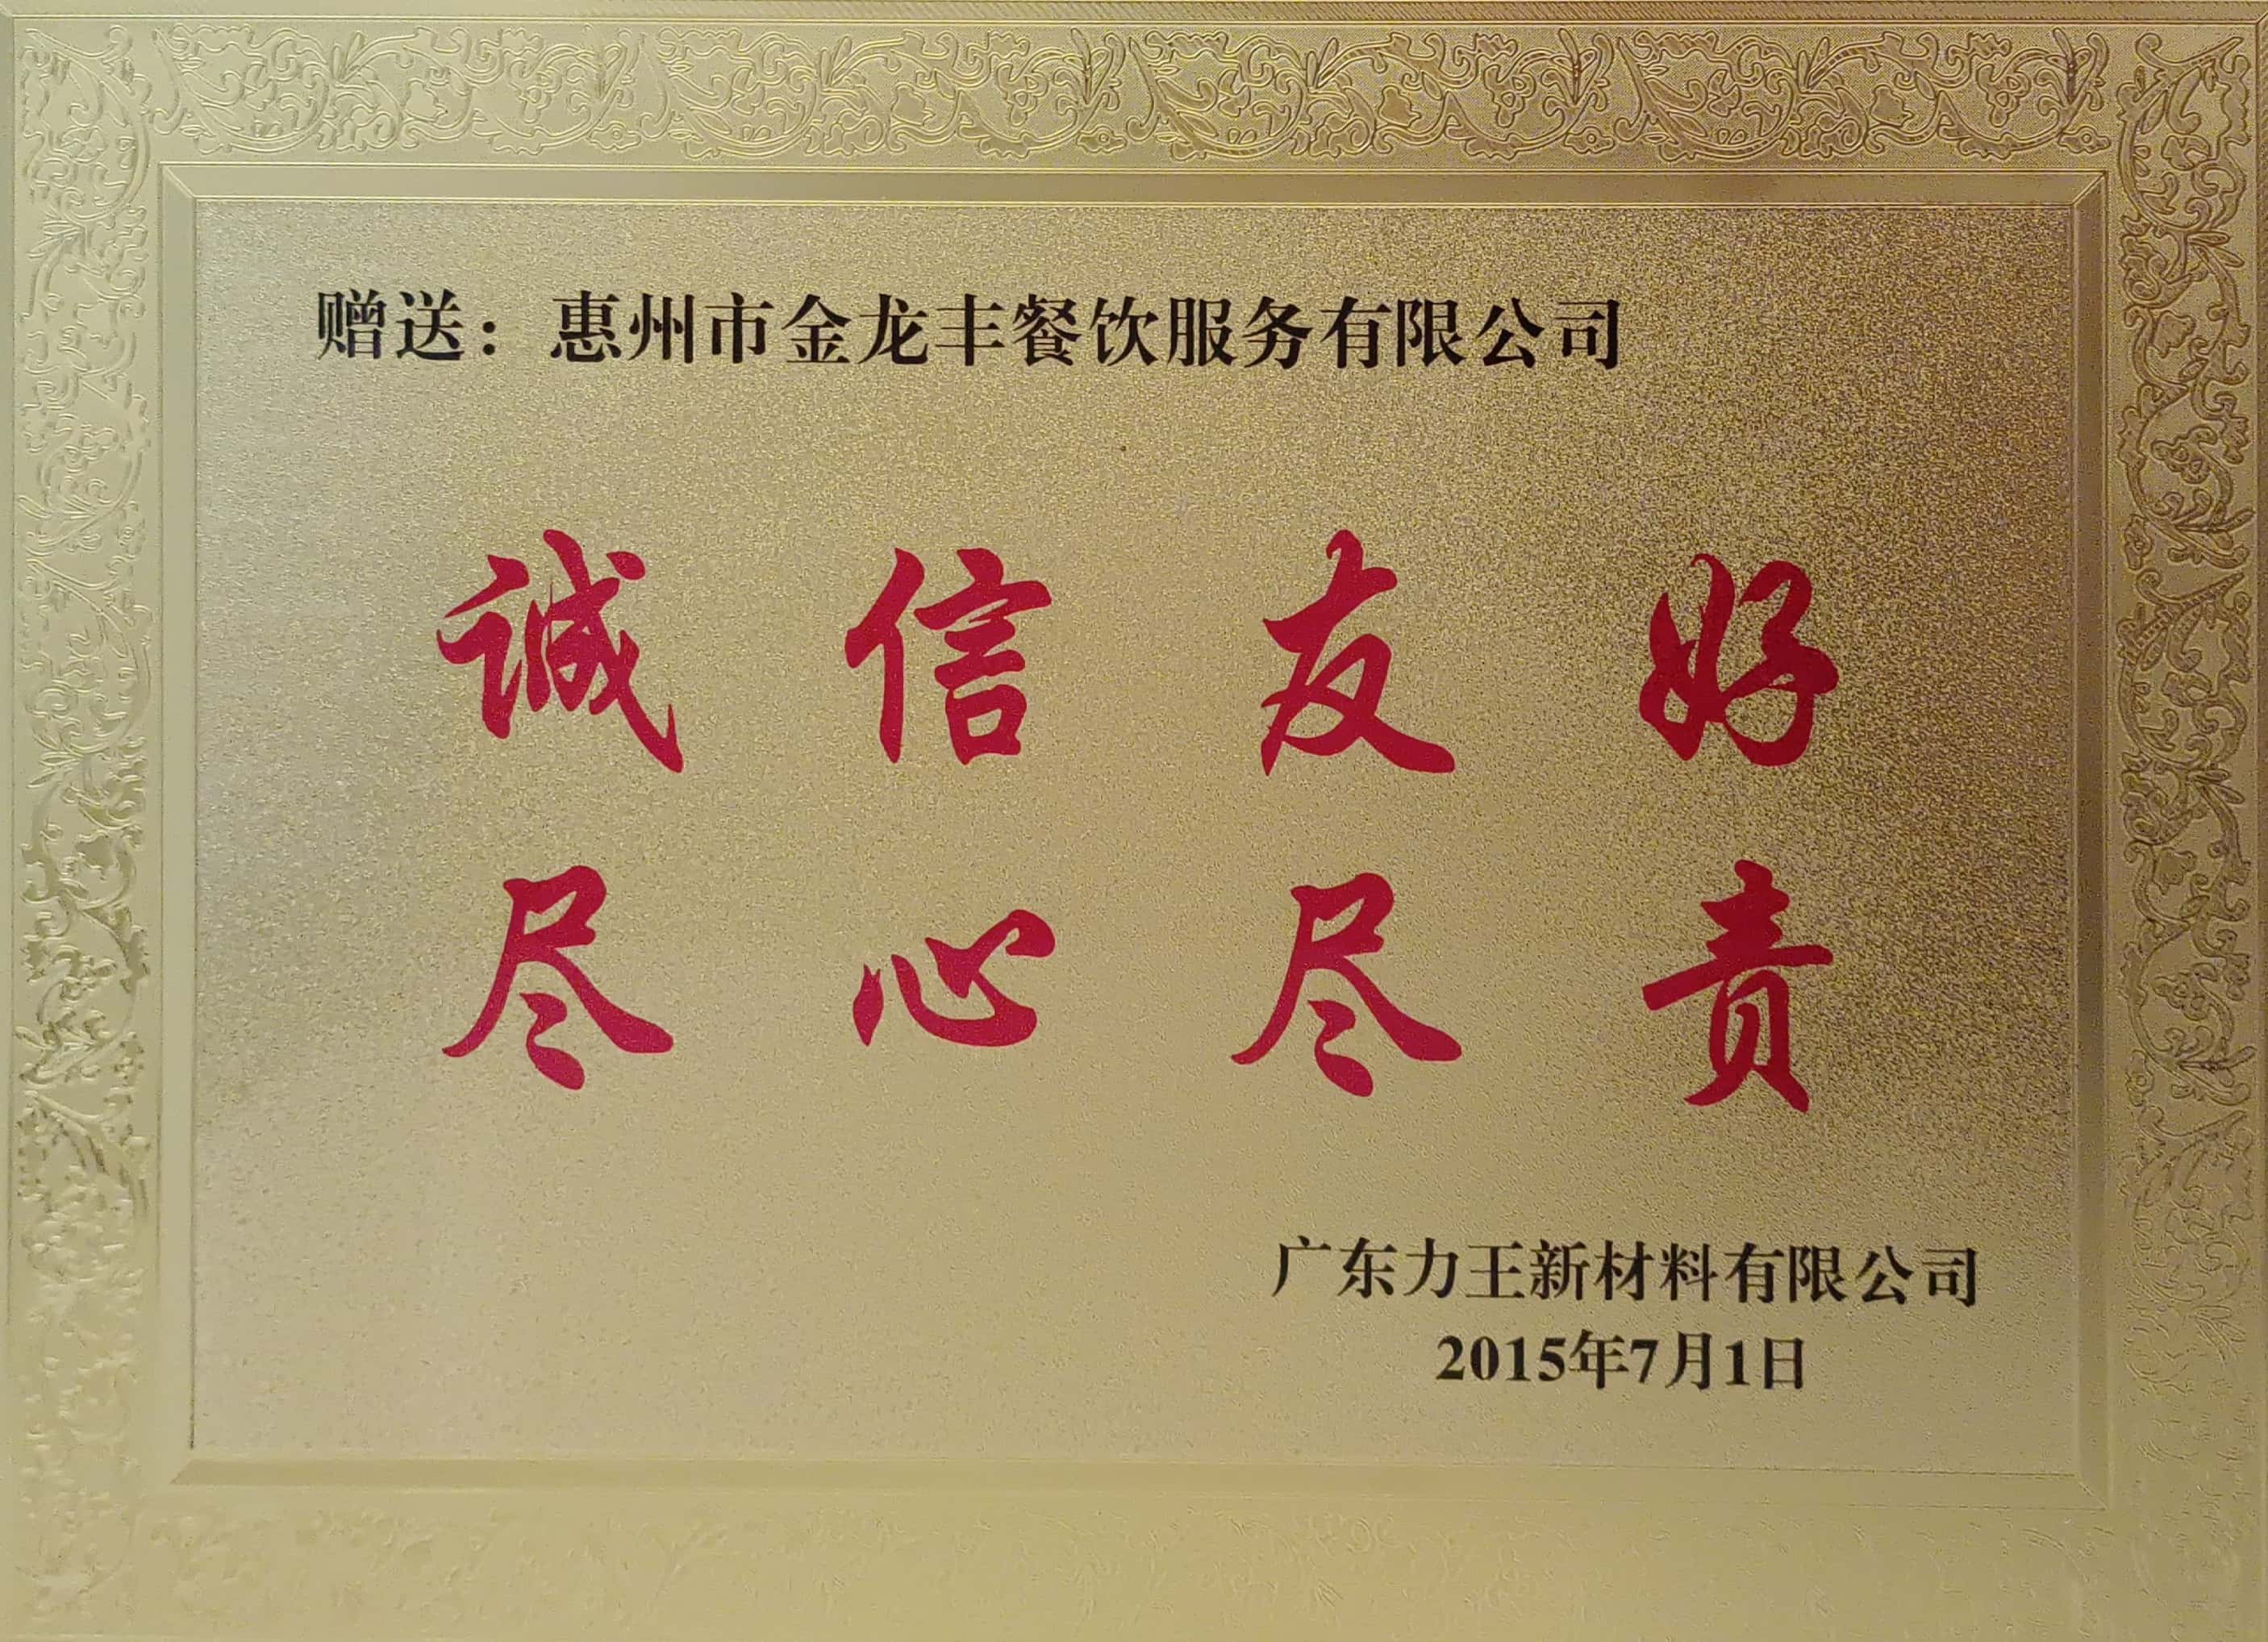 赠送：惠州市金龙丰餐饮服务有限公司
诚信友好
尽心尽责
广东力王新材料有限公司
2015年7月1日